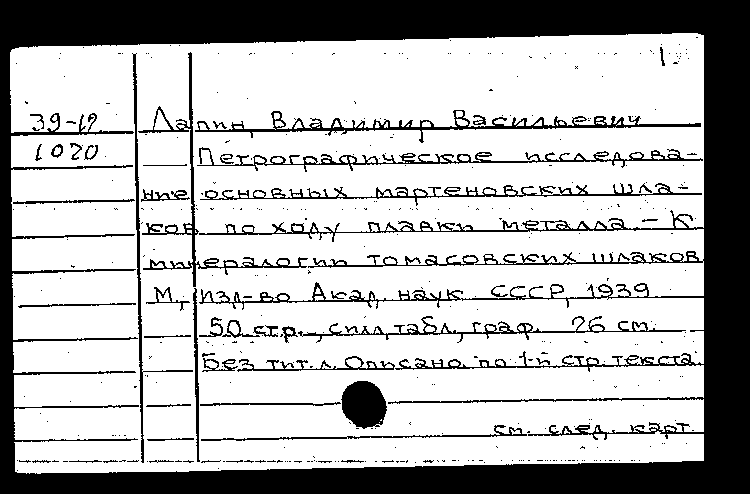 1
39-19 Лапин, Владимир Васильевич
1020 Петрографическое исследова-
ние основных мартеновских шла-
ков по ходу плавки металла. - К
минералогии томасовских шлаков
М., Изд-во Акад. наук СССР, 1939
50 стр., с илл, табл., граф. 26 см.
Без тит. л. Описано по 1-й стр. текста.
см. след. карт.